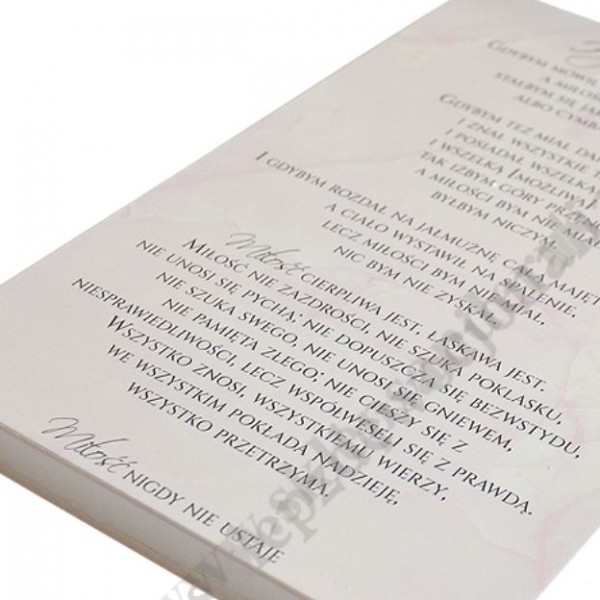 GDYBYM MÓWIŁ
A MIŁOŚ
STAŁBYM SIĘ JAK
ALBO CYMBA
GDYBYM TEŻ MIAŁ DAR
I ZNAŁ WSZYSTKIE T
I POSIADAŁ WSZELKĄ
I WSZELKĄ [MOŻLIWĄ]
TAK IŻBYM GÓRY PRZEN
A MIŁOŚCI BYM NIE MIAŁ
BYŁBYM NICZYM.
I GDYBYM ROZDAŁ NA JAŁMUŻNĘ CAŁĄ MAJĘT
A CIAŁO WYSTAWIŁ NA SPALENIE,
LECZ MIŁOŚCI BYM NIE MIAŁ,
NIC BYM NIE ZYSKAŁ.
Miłość CIERPLIWA JEST, ŁASKAWA JEST.
MIŁOŚĆ NIE ZAZDROŚCI, NIE SZUKA POKLASKU,
NIE UNOSI SIĘ PYCHĄ; NIE DOPUSZCZA SIĘ BEZWSTYDU,
NIE SZUKA SWEGO, NIE UNOSI SIĘ GNIEWEM,
NIE PAMIĘTA ZŁEGO; NIE CIESZY SIĘ Z
NIESPRAWIEDLIWOŚCI, LECZ WSPÓŁWESELI SIĘ Z PRAWDĄ.
WSZYSTKO ZNOSI, WSZYSTKIEMU WIERZY,
WE WSZYSTKIM POKŁADA NADZIEJĘ,
WSZYSTKO PRZETRZYMA.
Miłość NIGDY NIE USTAJE